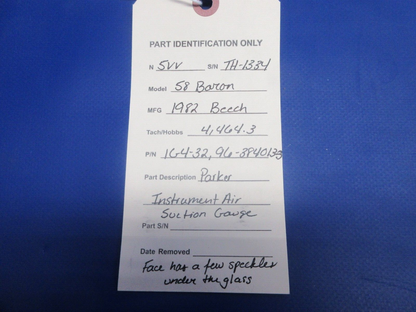 PART IDENTIFICATION ONLY
N 5VV S/N TH-1334
Model 58 Baron
MFG 1982 Beech
Tach/Hobbs 4,464.3
P/N 1G4-32, 96-3840135
Part Description Parker
Instrument Air
Suction Gauge
Part S/N
Date Removed
Face has a few speckles
under the glass